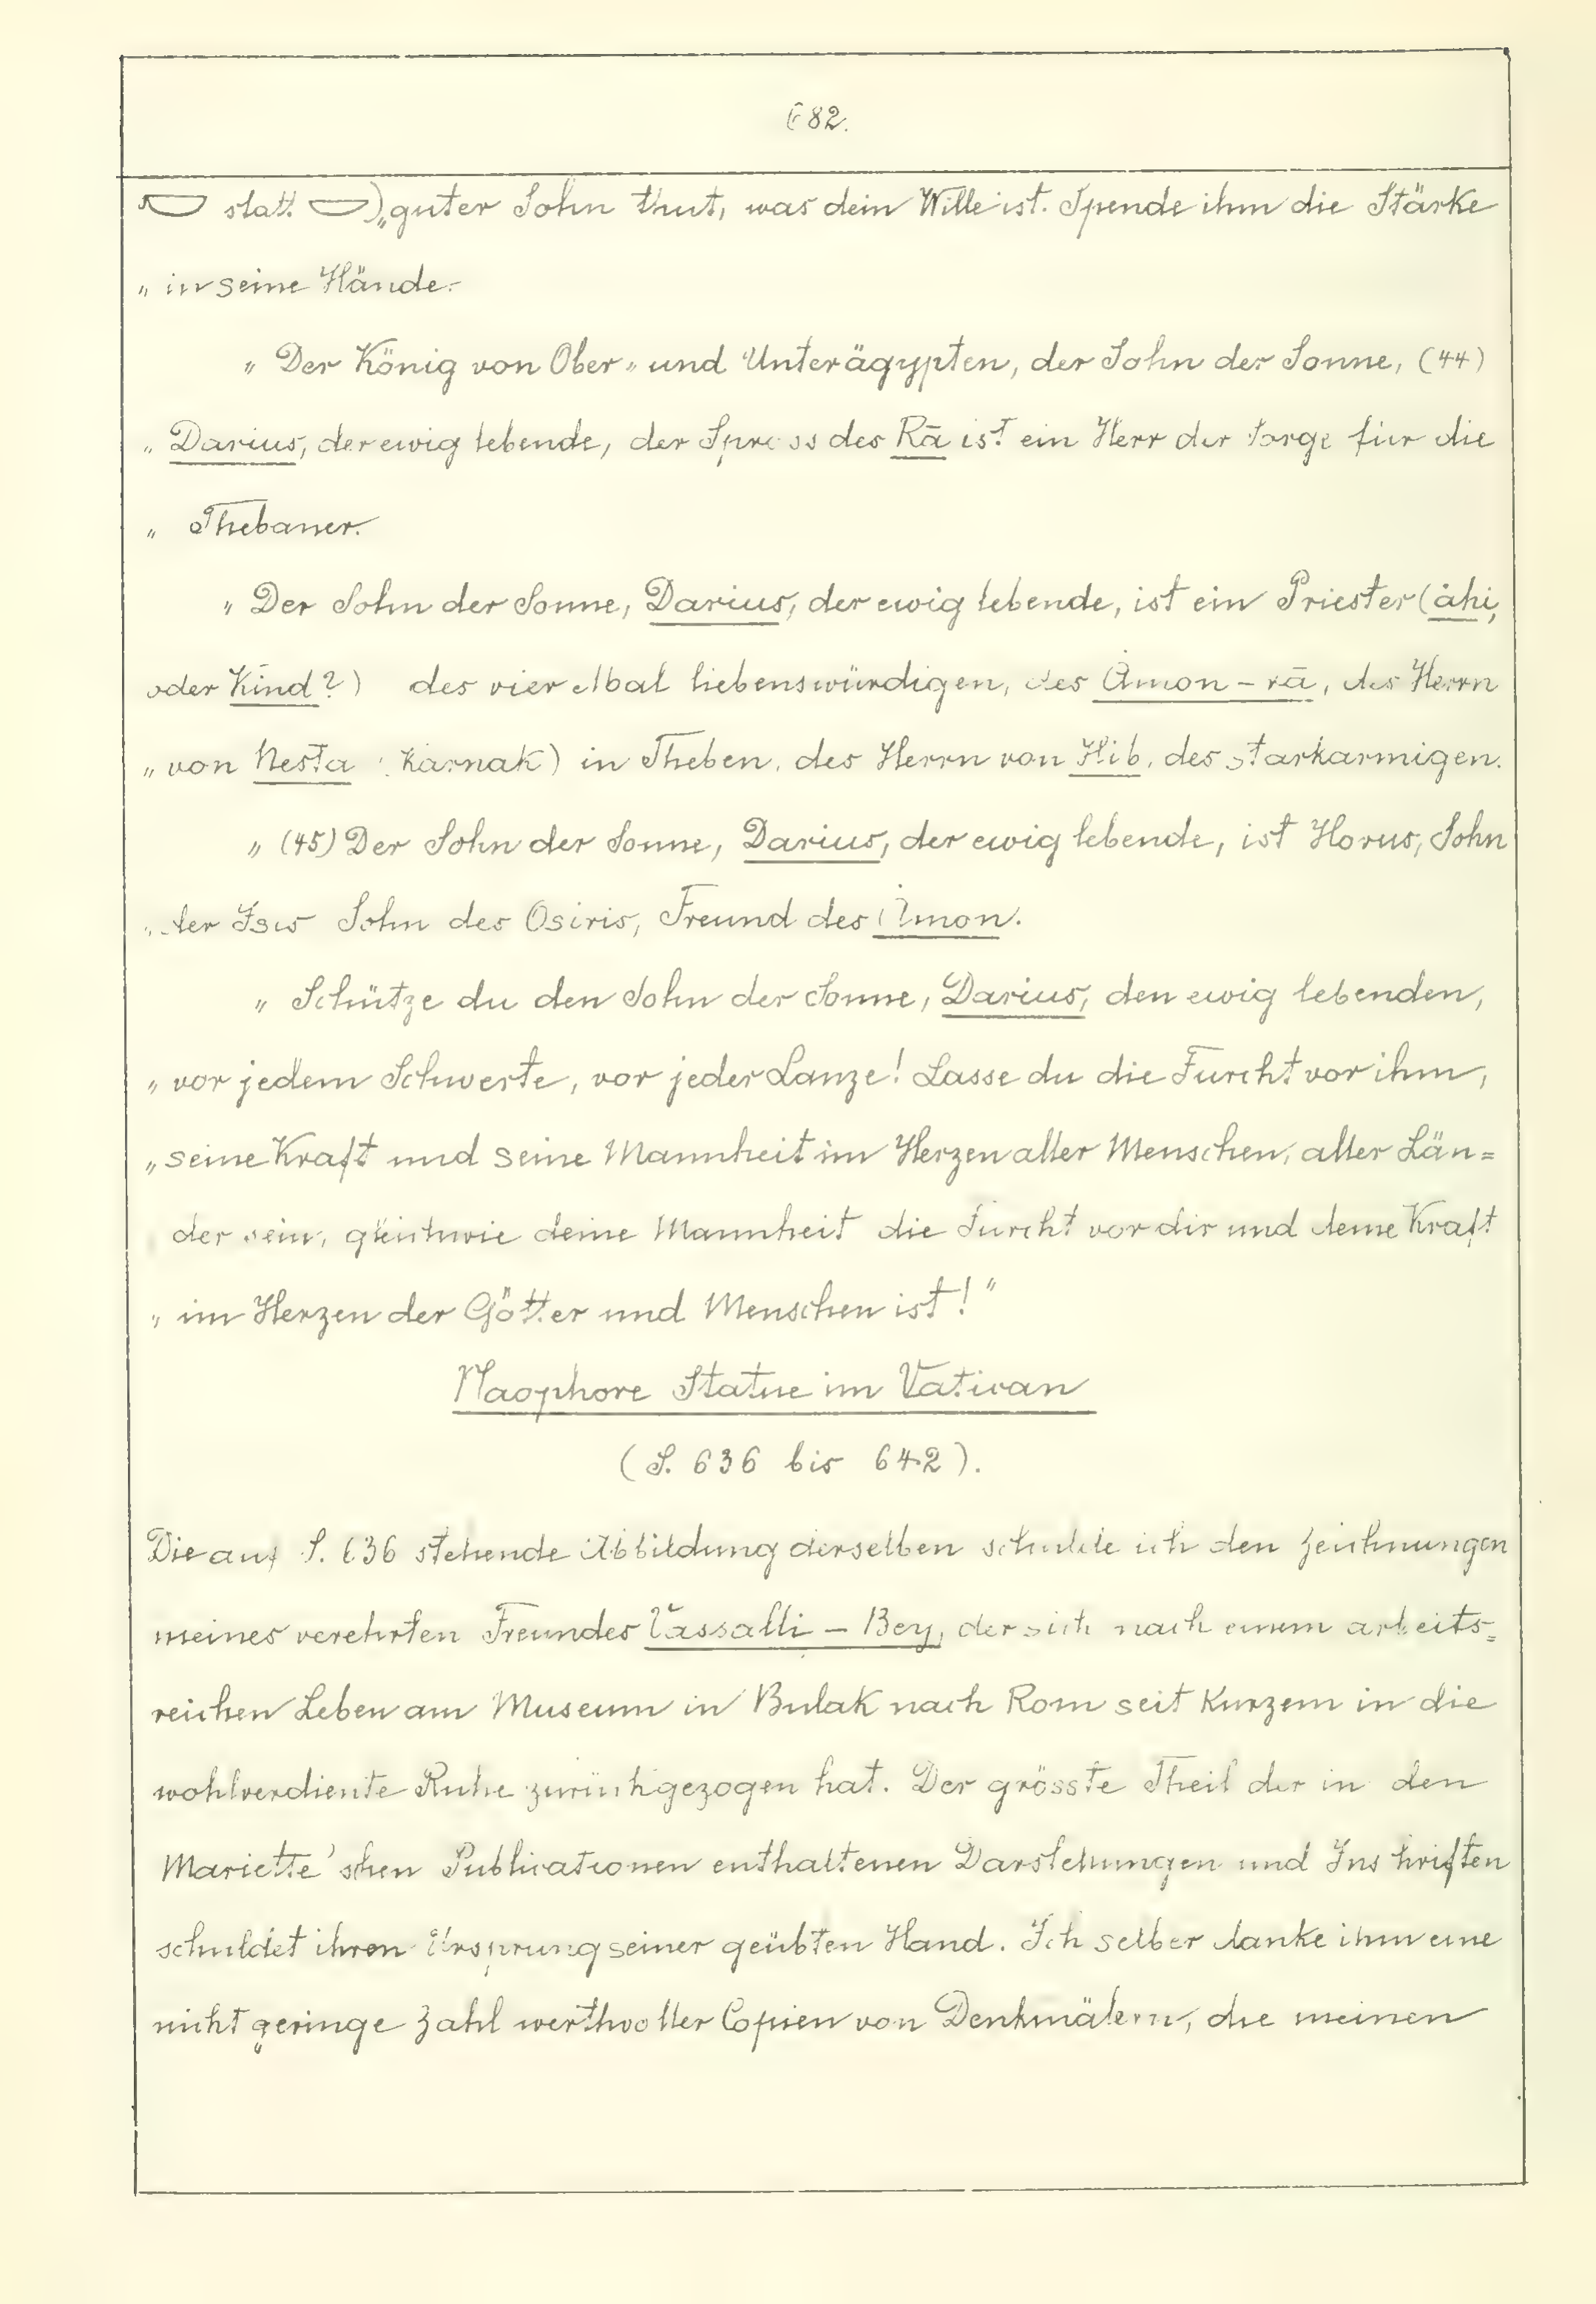 682.
𓎡 statt 𓎟) „guter Sohn thut, was dein Wille ist. Spende ihm die Stärke
„ in seine Hände.
„ Der König von Ober- und Unterägypten, der Sohn der Sonne, (44)
„ Darius, der ewig lebende, der Spross des Rā ist ein Herr der Sorge für die
„ Thebaner.
„ Der Sohn der Sonne, Darius, der ewig lebende, ist ein Priester (ȧhi,
oder Kind?) des vier Mal liebenswürdigen, des Ȧmon-rā, des Herrn
„ von Nesta (Karnak) in Theben, des Herrn von Hib, des starkarmigen.
„ (45) Der Sohn der Sonne, Darius, der ewig lebende, ist Horus, Sohn
„ der Isis Sohn des Osiris, Freund des Ȧmon.
„ Schütze du den Sohn der Sonne, Darius, den ewig lebenden,
„ vor jedem Schwerte, vor jeder Lanze! Lasse du die Furcht vor ihm,
„ seine Kraft und seine Mannheit im Herzen aller Menschen, aller Län=
der sein, gleichwie deine Mannheit die Furcht vor dir und deine Kraft
„ im Herzen der Götter und Menschen ist!"
Naophore Statue im Vatican
(S. 636 bis 642).
Die auf S. 636 stehende Abbildung derselben schulde ich den Zeichnungen
meines verehrten Freundes Vassalli-Bey, der sich nach einem arbeits=
reichen Leben am Museum in Bulak nach Rom seit Kurzem in die
wohlverdiente Ruhe zurückgezogen hat. Der grösste Theil der in den
Mariette'schen Publicationen enthaltenen Darstellungen und Inschriften
schuldet ihren Ursprung seiner geübten Hand. Ich selber danke ihm eine
nicht geringe Zahl werthvoller Copien von Denkmälern, die meinen